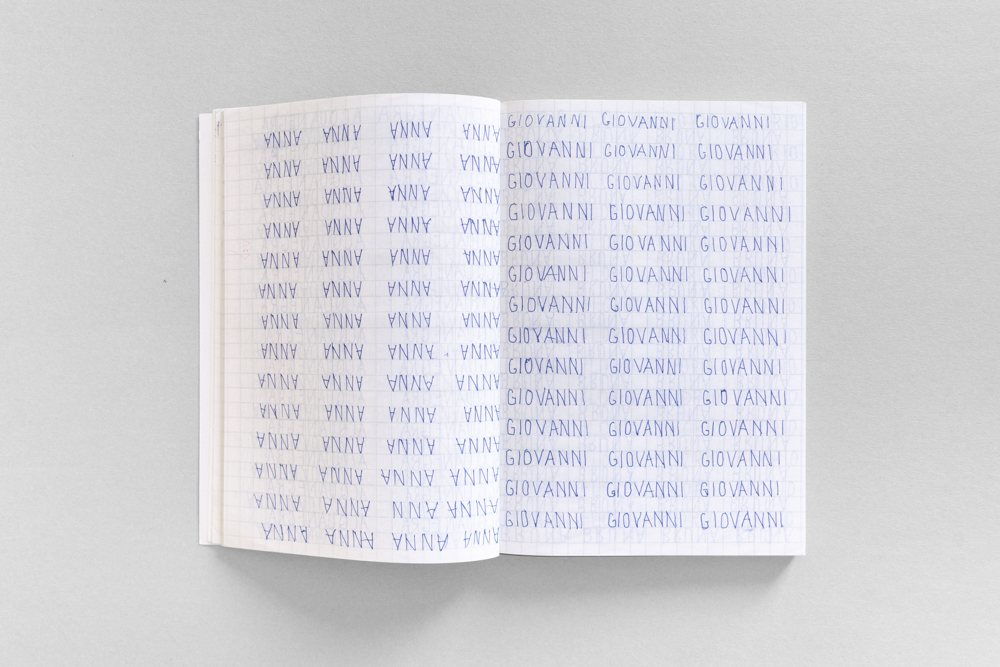 ANNA ANNA ANNA ANNA
ANNA ANN ANNA ANNA
ANNA ANNA ANNA ANNA
ANNA ANNA ANNA ANNA
ANNA ANNA ANNA ANNA
ANNA ANNA ANNA ANNA
ANNA ANNA ANNA ANNA
ANNA ANNA ANNA ANNA
ANNA ANNA ANNA ANNA
ANNA ANNA ANNA ANNA
ANNA ANNA ANNA ANNA
ANNA ANNA ANNA ANNA
ANNA ANNA ANNA ANNA
ANNA ANNA ANNA ANNA
GIOVANNI GIOVANNI GIOVANNI
GIOVANNI GIOVANNI GIOVANNI
GIOVANNI GIOVANNI GIOVANNI
GIOVANNI GIOVANNI GIOVANNI
GIOVANNI GIOVANNI GIOVANNI
GIOVANNI GIOVANNI GIOVANNI
GIOVANNI GIOVANNI GIOVANNI
GIOVANNI GIOVANNI GIOVANNI
GIOVANNI GIOVANNI GIOVANNI
GIOVANNI GIOVANNI GIOVANNI
GIOVANNI GIOVANNI GIOVANNI
GIOVANNI GIOVANNI GIOVANNI
GIOVANNI GIOVANNI GIOVANNI
GIOVANNI GIOVANNI GIOVANNI